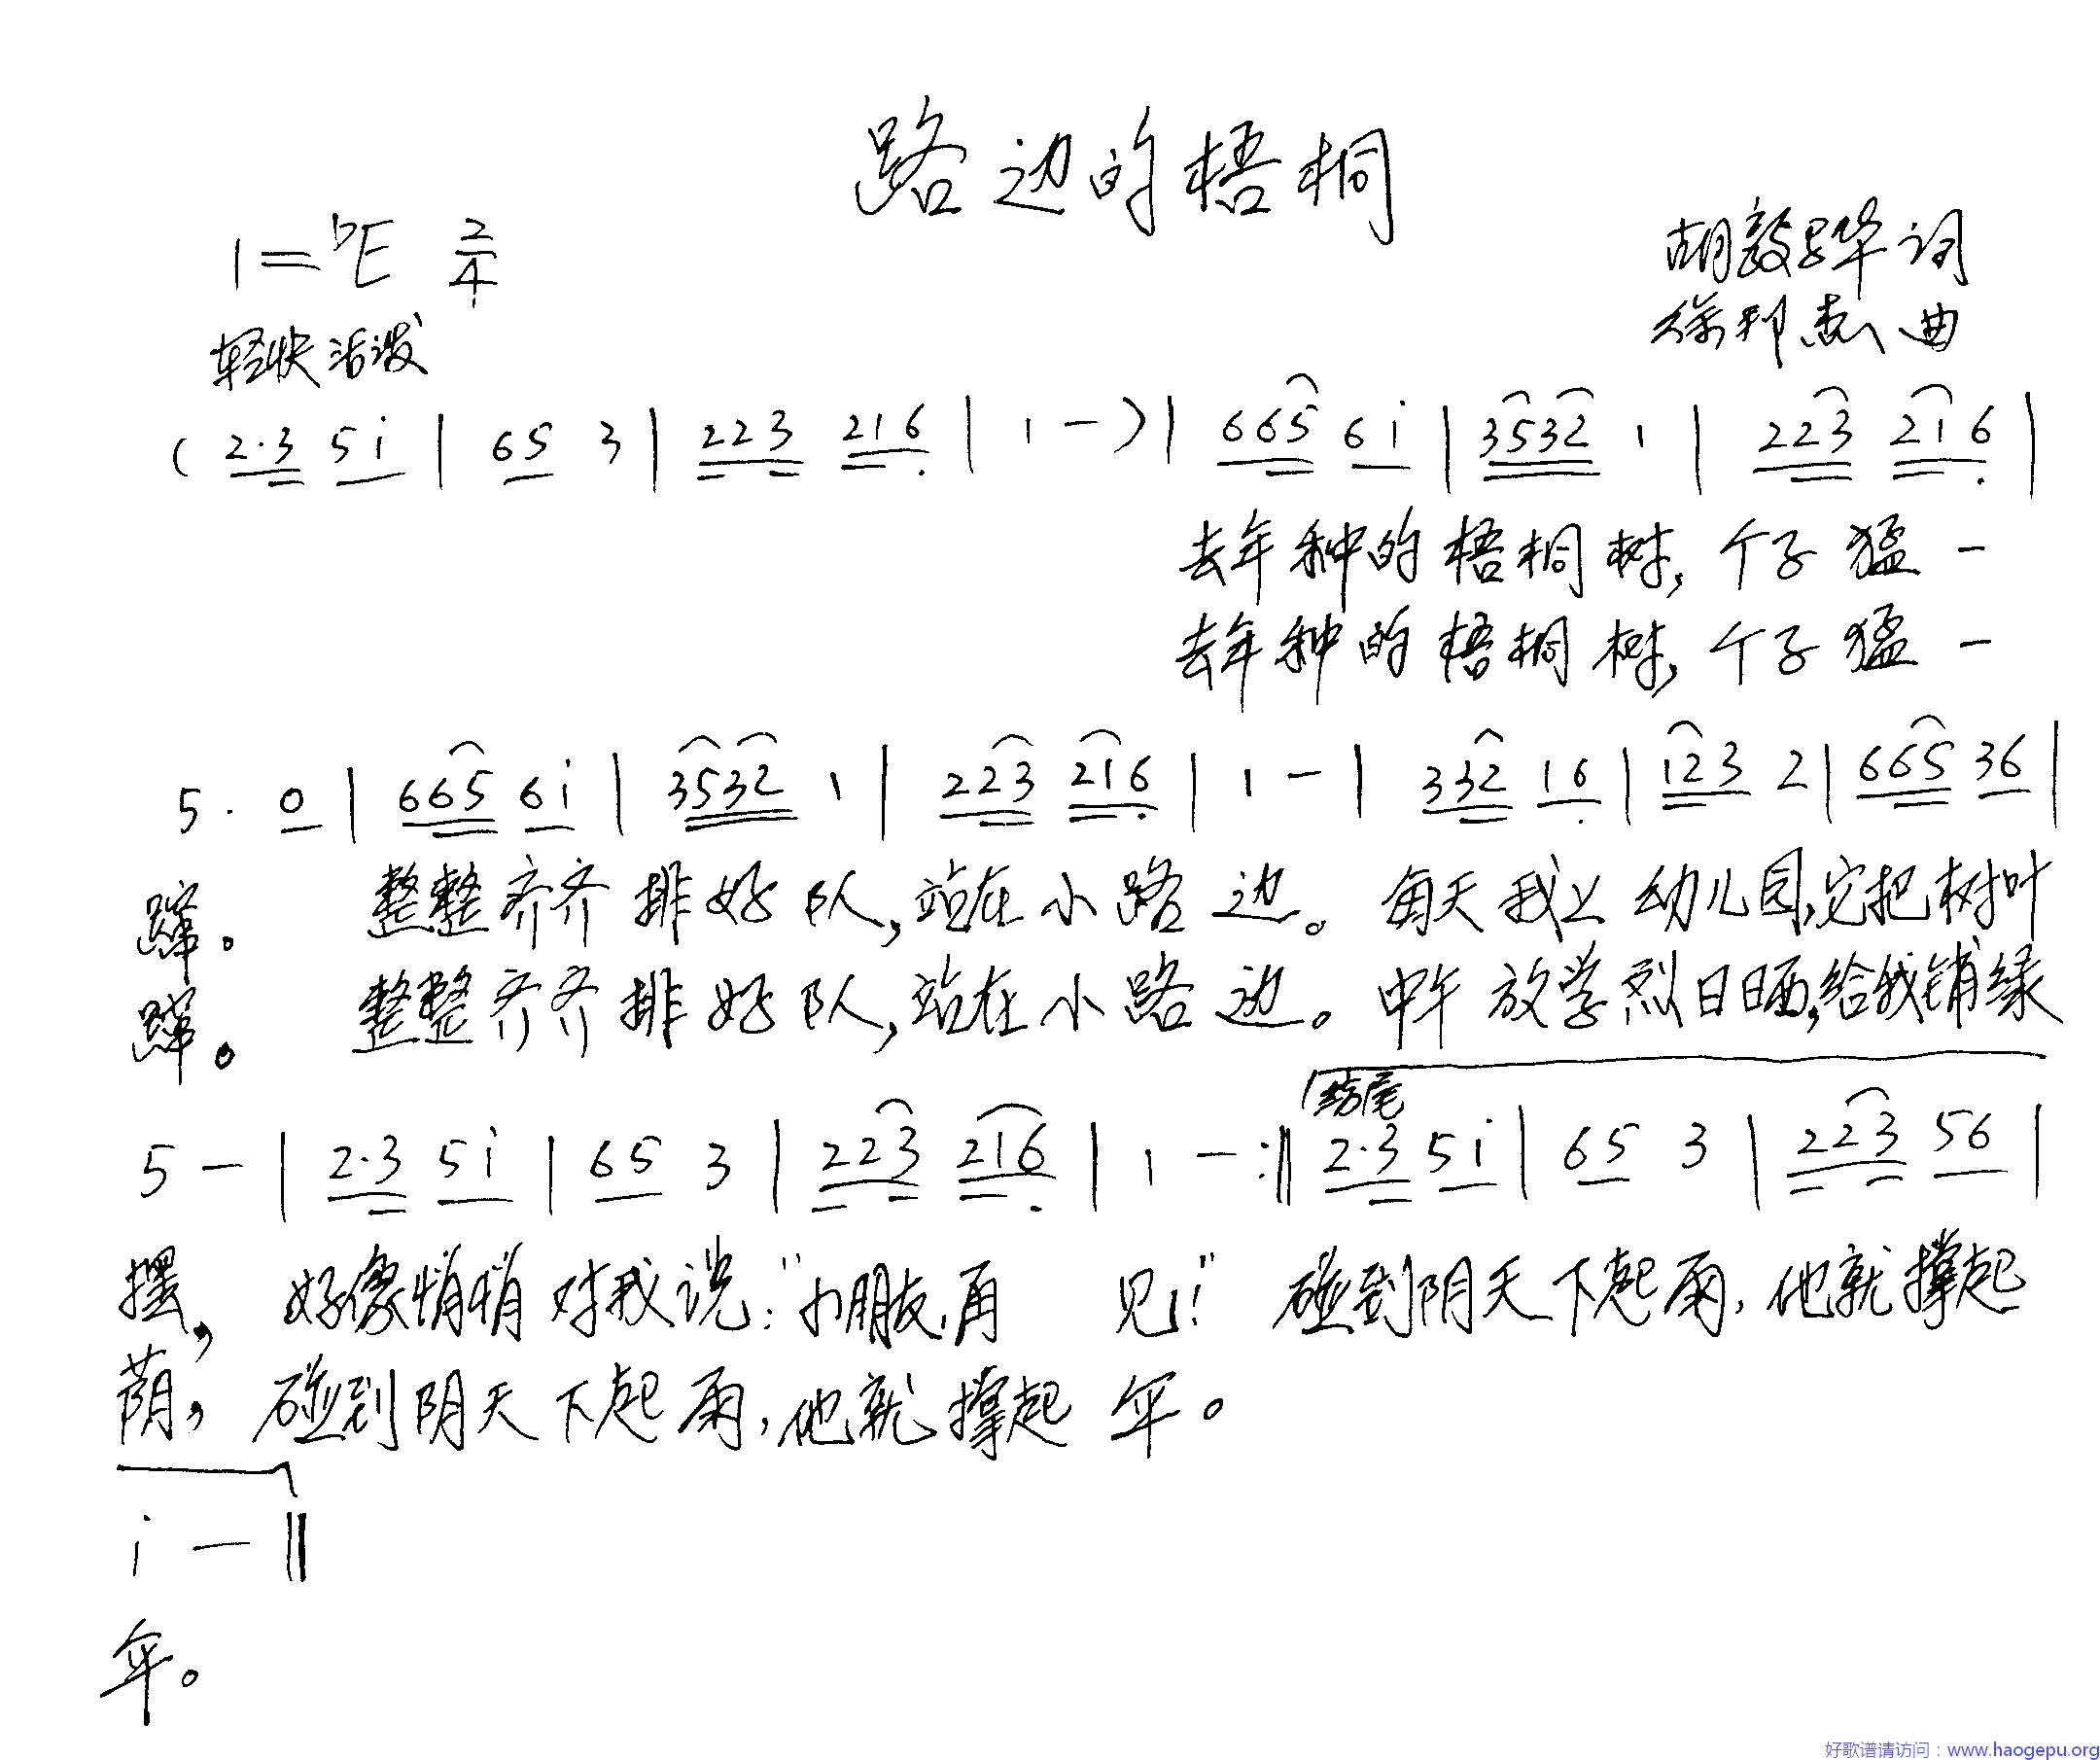 路边的梧桐
1=♭E 2/4
胡敦骅词
轻快活泼
徐邦杰曲
(2·3 5i | 65 3 | 223 216 | 1 - ) | 665 6i | 3532 1 | 223 216 |
去年种的梧桐树,个子猛一
去年种的梧桐树,个子猛一
5· 0 | 665 6i | 3532 1 | 223 216 | 1 - | 332 16 | 123 2 | 665 36 |
蹿。 整整齐齐排好队,站在小路边。每天我上幼儿园,它把树叶
蹿。 整整齐齐排好队,站在小路边。中午放学烈日晒,给我铺绿
结尾
5 - | 2·3 5i | 65 3 | 223 216 | 1 - :‖ 2·3 5i | 65 3 | 223 56 |
摆,好像悄悄对我说:"小朋友,再见!" 碰到阴天下起雨,他就撑起
荫,碰到阴天下起雨,他就撑起伞。
i - ‖
伞。
好歌谱请访问:www.haogepu.org